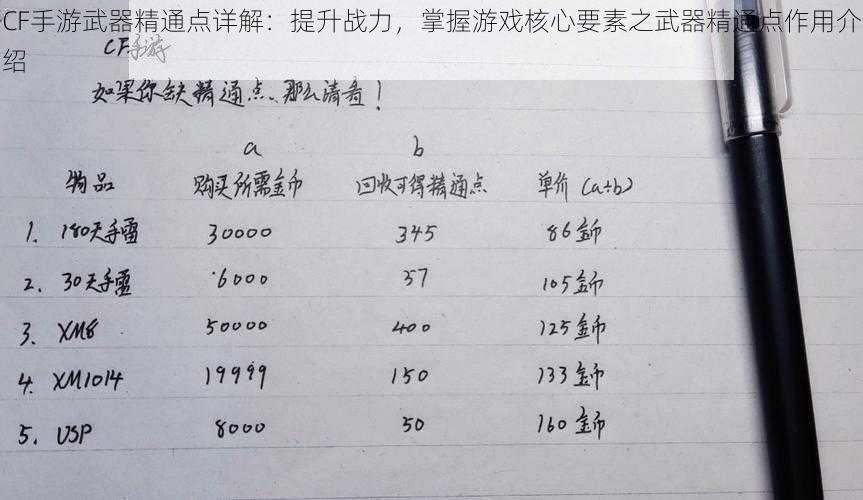 CF手游武器精通点详解：提升战力，掌握游戏核心要素之武器精通点作用介
绍
CF手游
如果你缺精通点、那么请看！
a b
物品 购买所需金币 回收可得精通点 单价（a÷b）
1. 180天手雷 30000 345 86金币
2. 30天手雷 6000 57 105金币
3. XM8 50000 400 125金币
4. XM1014 19999 150 133金币
5. USP 8000 50 160金币